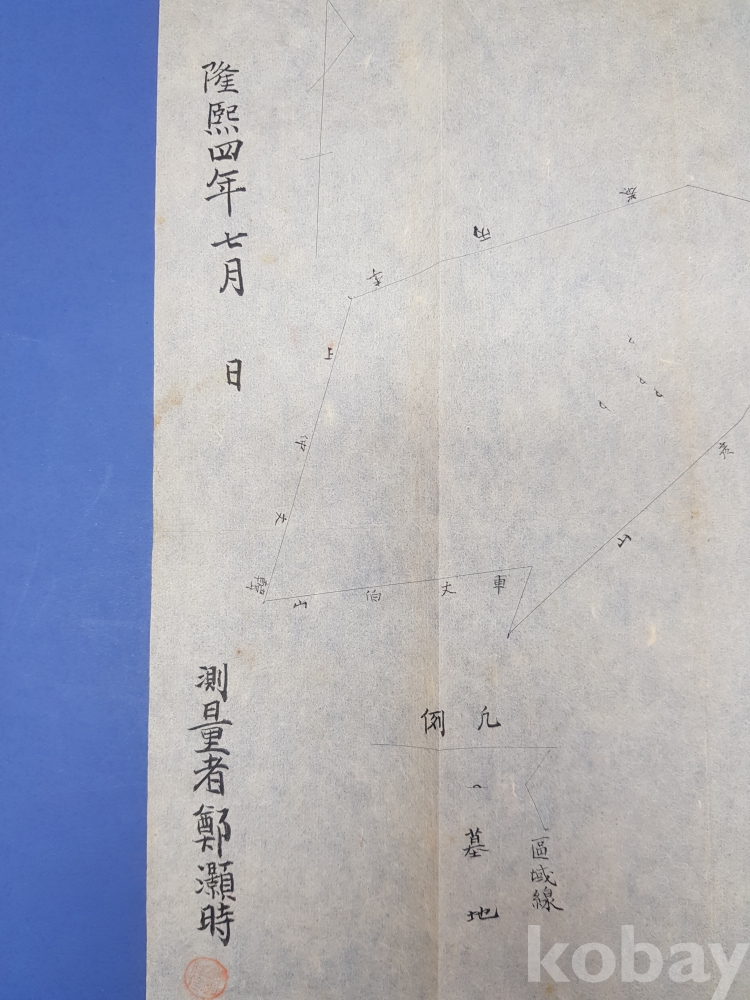 隆熙四年七月 日
上
山 伯 丈 車
山
凡例
墓地
區域線
測量者 鄭灝時
kobay